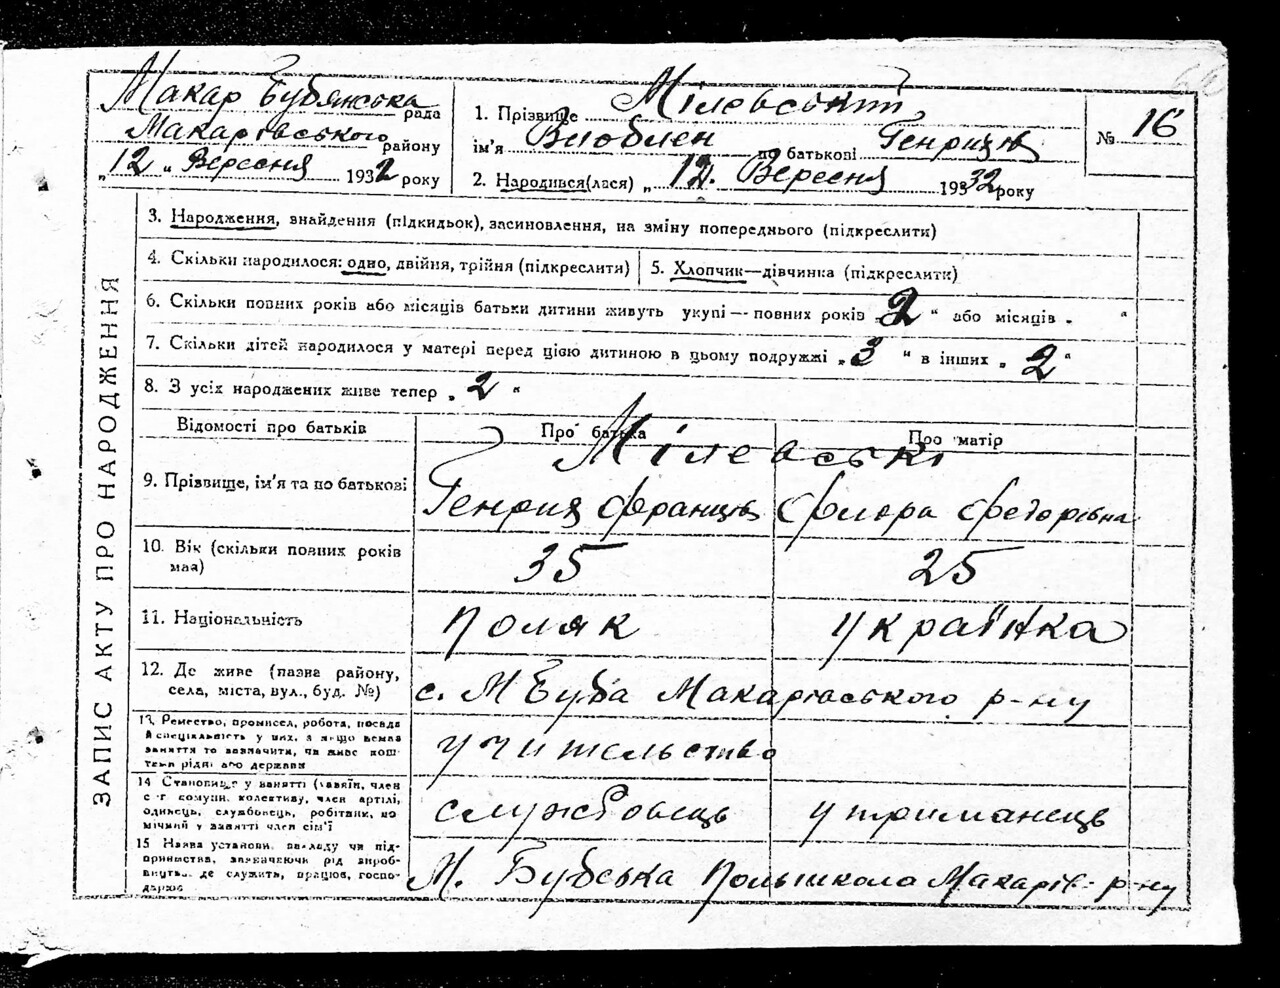 ЗАПИС АКТУ ПРО НАРОДЖЕННЯ
Макар Бубянська рада
Макарівського району
„12" Вересня 1932 року
1. Прізвище Мілевський
ім'я по батькові Генрихів
2. Народився(лася) „12. Вересня 1932 року
№ 16
3. Народження, знайдення (підкидьок), засиновлення, на зміну попереднього (підкреслити)
4. Скільки народилося: одно, двійня, трійня (підкреслити)
5. Хлопчик—дівчинка (підкреслити)
6. Скільки повних років або місяців батьки дитини живуть укупі — повних років „2" або місяців „ "
7. Скільки дітей народилося у матері перед цією дитиною в цьому подружжі „3" в інших „2"
8. З усіх народжених живе тепер „2"
Відомості про батьків
Про батька
Про матір
Мілевські
9. Прізвище, ім'я та по батькові
Генрих Франців
Флора Федорівна
10. Вік (скільки повних років має)
35
25
11. Національність
поляк
українка
12. Де живе (назва району,
села, міста, вул., буд. №)
с. М Буба Макарівського р-ну
13. Ремество, промисел, робота, посада
й спеціяльність у них, а якщо немає
заняття то зазначити, чи живе кош-
тами рідні або держави
учительство
14 Становище у занятті (хазяїн, член
с-г комуни, колективу, член артілі,
одинець, службовець, робітник, по
мічний у занятті член сім'ї
службовець
утриманець
15 Назва установи, закладу чи під-
приємства, зазначаючи рід вироб-
ництва, де служить, працює, госпо-
дарює
М. Бубська Польшкола Макарів- р-ну